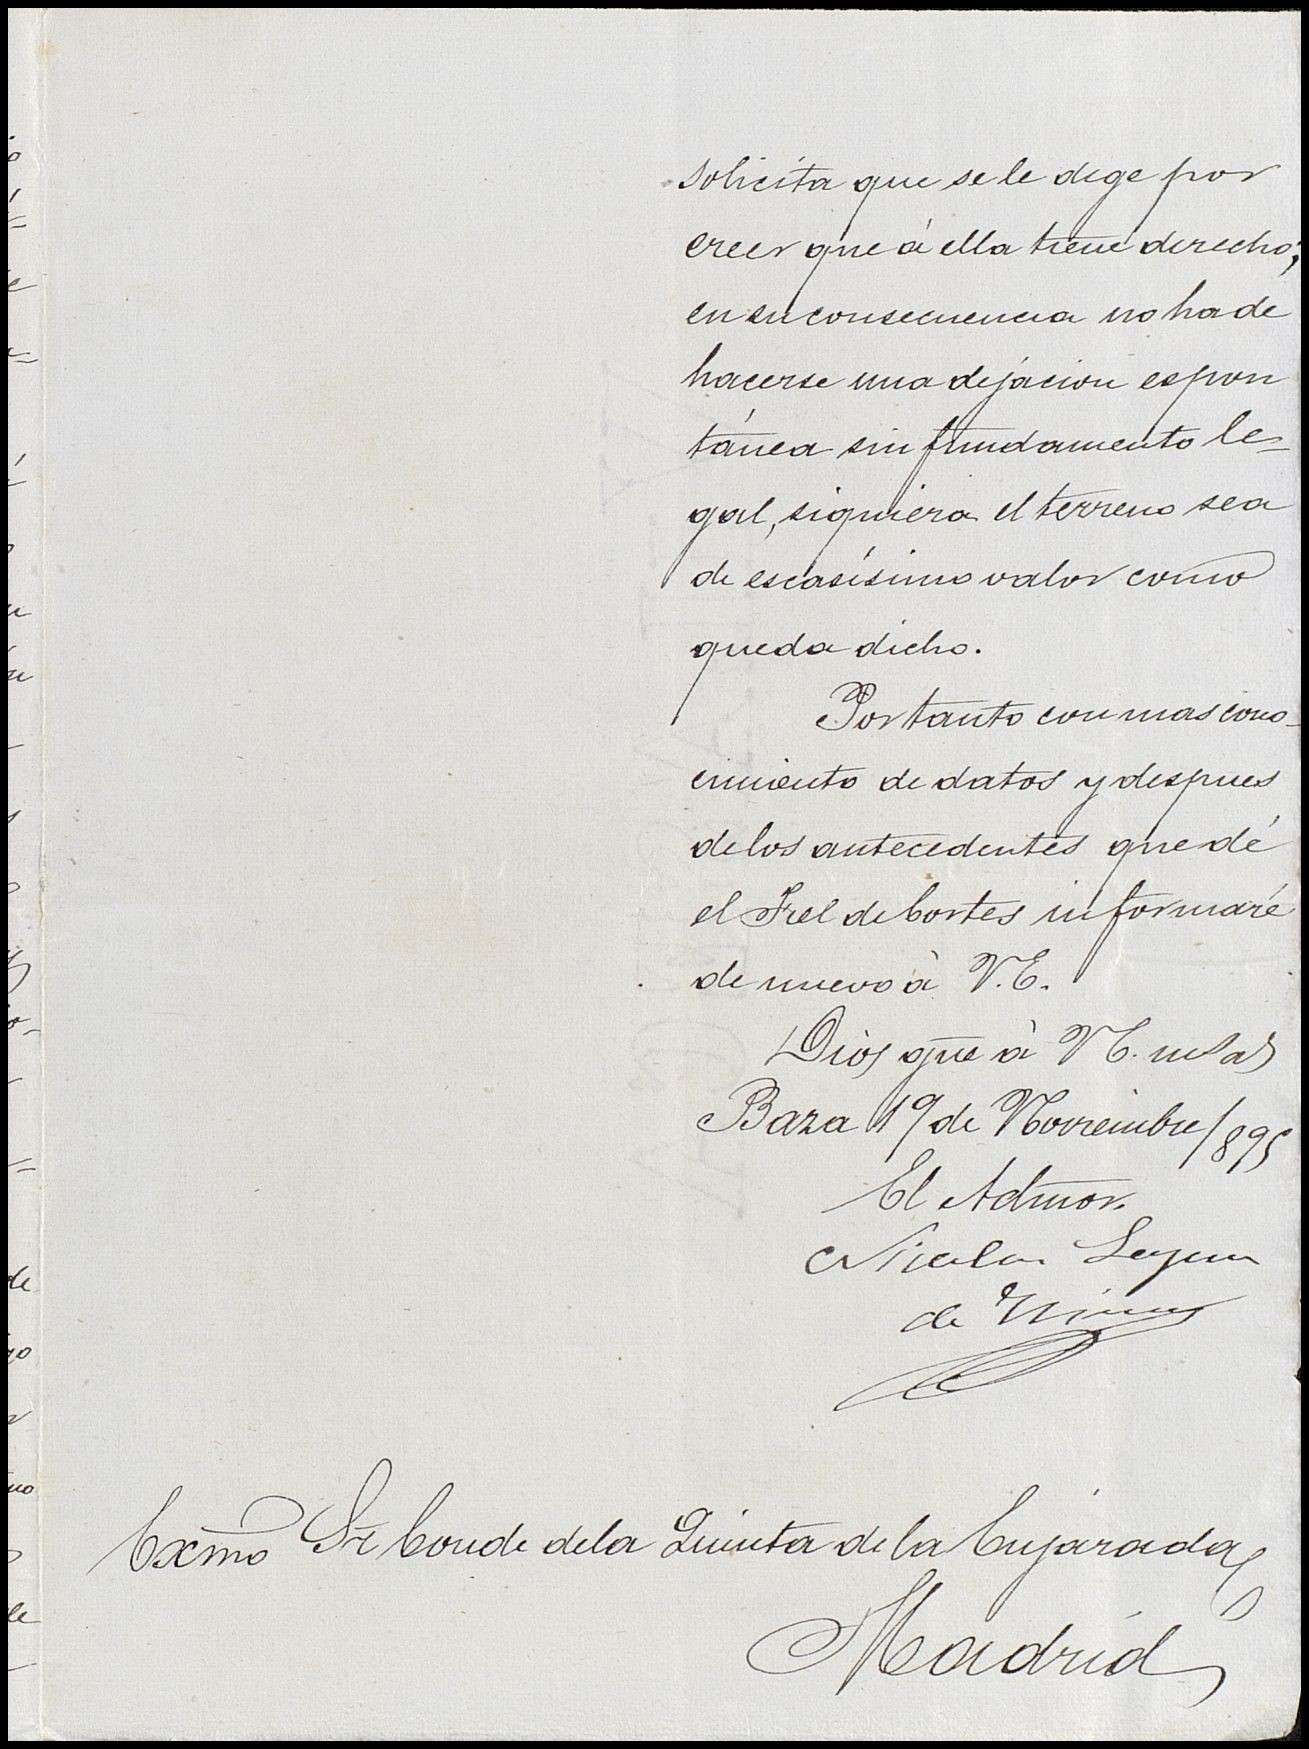 solicita que se le dege por
creer que á ella tiene derecho;
en su consecuencia no ha de
hacerse una dejacion espon
tánea sin fundamento le=
gal, siquiera el terreno sea
de escasísimo valor como
queda dicho.
Por tanto con mas cono-
cimiento de datos y despues
de los antecedentes que dé
el Fiel de Cortes informaré
de nuevo á V.E.
Dios gue á V.E. ms as
Baza 19 de Noviembre/895
El Admor.
Nicolas
de
Exmo Sr Conde de la Quinta de la Enjarada
Madrid